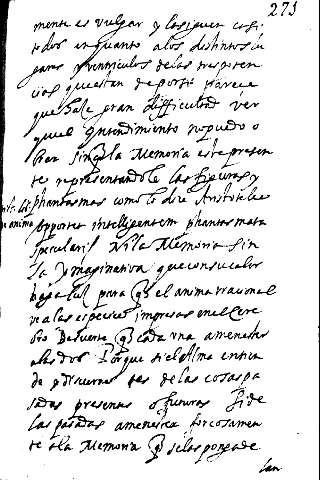 273
mente es vulgar y la siguen casi
todos en quanto a los distintos lu
gares y ventriculos de las tres poten
cias questan de por si parece
que sale gran difficultad ver
quel entendimiento no puedo o
brar sin q la Memoria este presen
te representandole las figuras y
phantasmas como lo dice Aristoteles
oportet intelligentem phantasmata
speculari Ni la Memoria sin
la ymaginativa que con su calor
haga luz para q el anima rracional
vea las especies impresas en el Cere
bro De suerte q cada una a menester
a las dos Porque si el Alma entien
de y discurre es de las cosas pa
sadas presentes o futuras Si de
las pasadas a menester forcosamen
te a la Memoria q se las ponga de
lan
anima